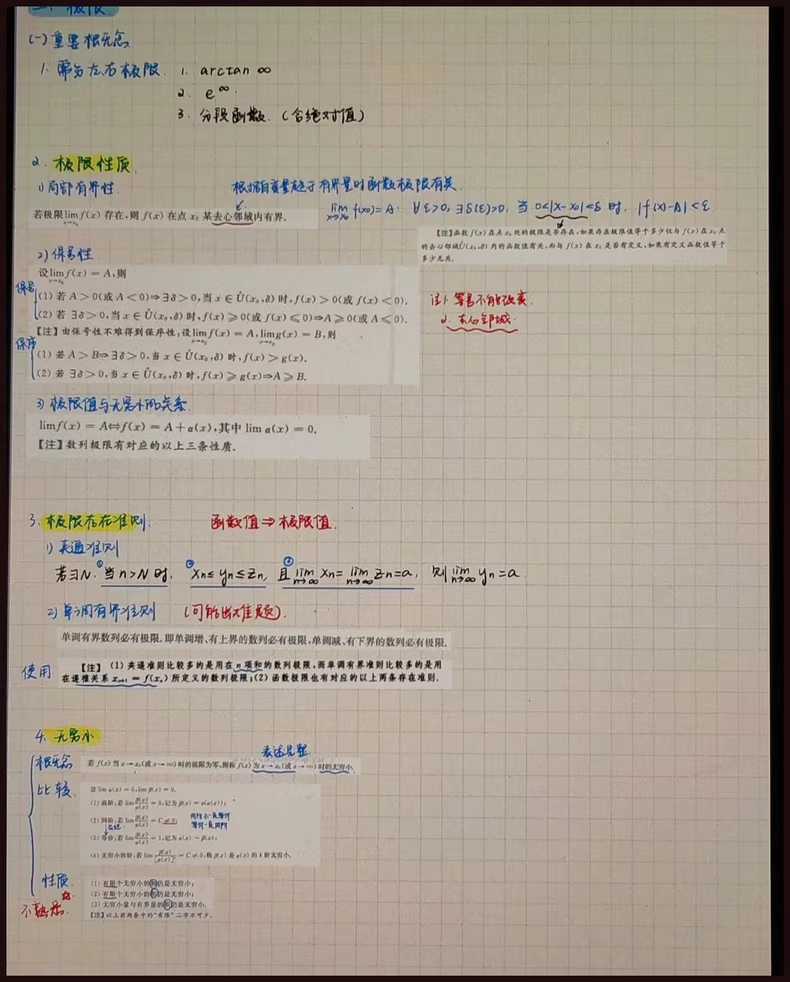 二. 极限
(一) 重要概念
1. 需分左右极限. 1. arctan ∞
2. e^∞.
3. 分段函数. (含绝对值)
2. 极限性质.
1) 局部有界性
根据自变量趋于有界量时函数极限有关.
若极限lim_{x→x₀}f(x) 存在,则 f(x) 在点 x₀ 某去心邻域内有界.
lim_{x→x₀} f(x)=A: ∀ε>0, ∃δ(ε)>0, 当 0<|x-x₀|<δ 时, |f(x)-A|<ε
【注】函数 f(x) 在点 x₀ 处的极限是否存在,如果存在极限值等于多少仅与 f(x) 在 x₀ 点
的去心邻域Ů(x₀,δ) 内的函数值有关,而与 f(x) 在 x₀ 是否有定义,如果有定义函数值等于
多少无关.
2) 保号性
设lim_{x→x₀}f(x) = A,则
保号
(1) 若 A > 0(或 A < 0)⇒∃δ > 0,当 x ∈ Ů(x₀,δ) 时,f(x) > 0(或 f(x) < 0).
(2) 若 ∃δ > 0,当 x ∈ Ů(x₀,δ) 时,f(x) ⩾ 0(或 f(x) ⩽ 0)⇒A ⩾ 0(或 A ⩽ 0).
注1. 等号不能改变
2. 去心邻域.
【注】由保号性不难得到保序性,设lim_{x→x₀}f(x) = A,lim_{x→x₀}g(x) = B,则
保序
(1) 若 A > B⇒∃δ > 0,当 x ∈ Ů(x₀,δ) 时,f(x) > g(x).
(2) 若 ∃δ > 0,当 x ∈ Ů(x₀,δ) 时,f(x) ⩾ g(x)⇒A ⩾ B.
3) 极限值与无穷小的关系
limf(x) = A⇔f(x) = A + α(x),其中 lim α(x) = 0.
【注】数列极限有对应的以上三条性质.
3. 极限存在准则. 函数值 ⇒ 极限值.
1) 夹逼准则
若∃N. ①当 n>N 时, ②xₙ≤yₙ≤zₙ, ③且 lim_{n→∞} xₙ= lim_{n→∞} zₙ=a, 则 lim_{n→∞} yₙ=a
2) 单调有界准则 (可能出难题).
单调有界数列必有极限. 即单调增、有上界的数列必有极限,单调减、有下界的数列必有极限.
使用
【注】 (1) 夹逼准则比较多的是用在 n 项和的数列极限,而单调有界准则比较多的是用
在递推关系 xₙ₊₁ = f(xₙ) 所定义的数列极限;(2) 函数极限也有对应的以上两条存在准则.
4. 无穷小
表述完整
概念
若 f(x) 当 x→x₀(或 x→∞) 时的极限为零,则称 f(x) 为 x→x₀(或 x→∞) 时的无穷小.
比较
设 lim α(x) = 0,lim β(x) = 0.
(1) 高阶:若 lim β(x)/α(x) = 0,记为 β(x) = o(α(x));
(2) 同阶:若 lim β(x)/α(x) = C ≠ 0;
(3) 等价:若 lim β(x)/α(x) = 1,记为 α(x) ~ β(x);
(4) 无穷小的阶:若 lim β(x)/[α(x)]^k = C ≠ 0,称 β(x) 是 α(x) 的 k 阶无穷小.
性质
(1) 有限个无穷小的和仍是无穷小;
(2) 有限个无穷小的积仍是无穷小;
(3) 无穷小量与有界量的积仍是无穷小.
【注】以上前两条中的“有限”二字不可少.